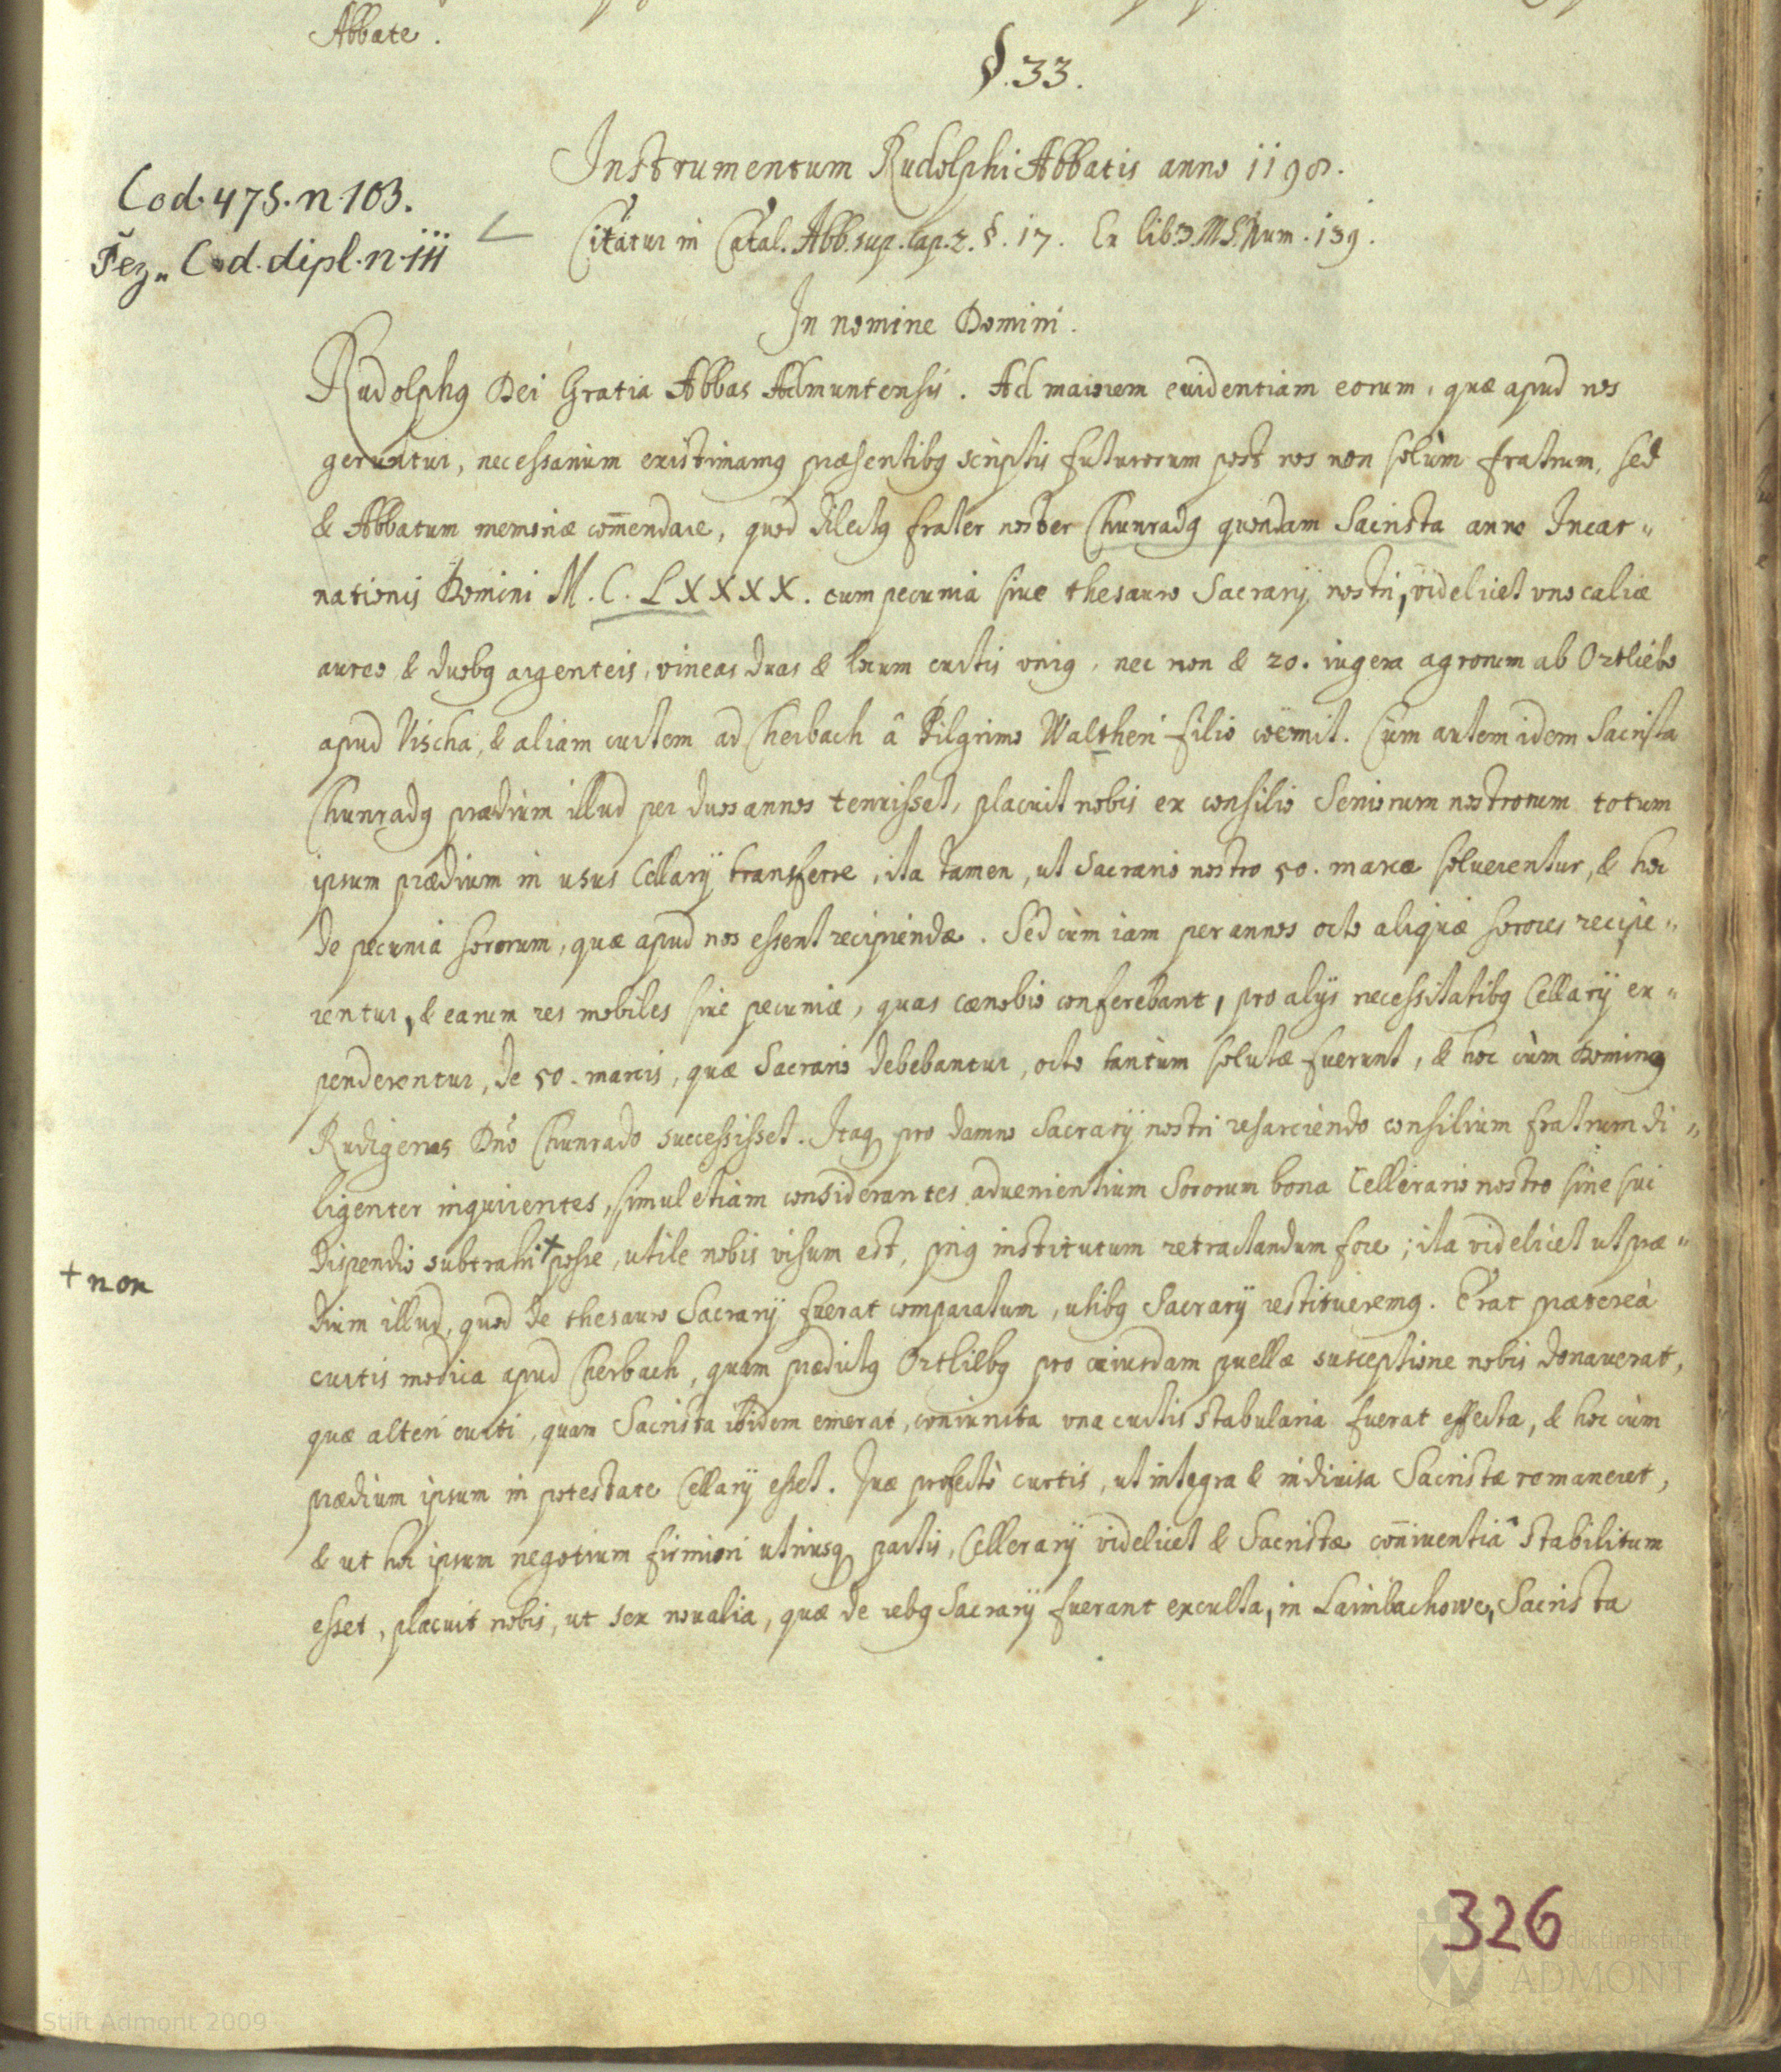 Abbate.
§.33.
Instrumentum Rudolphi Abbatis anno 1198.
Cod. 475. n. 103.
Citatur in Catal. Abb. sup. Cap. 2. §. 17. Ex lib. 3. MS. Num. 139.
Pez„ Cod. dipl. n. 111
In nomine Domini.
Rudolphꝰ Dei Gratia Abbas Admuntensis. Ad maiorem euidentiam eorum, quæ apud nos
geruntur, necessarium existimamꝰ præsentibꝰ scriptis futurorum post nos non solùm fratrum, sed
& Abbatum memoriæ com̄endare, quod dilectꝰ frater noster Chunradꝰ quondam Sacrista anno Incar„
nationis Domini M. C. LXXXX. cum pecunia siue thesauro Sacrarÿ nostri, videlicet vno calice
aureo & duobꝰ argenteis, vineas duas & locum curtis vniꝰ, nec non & 20. iugera agrorum ab Ortliebo
apud Vischa, & aliam curtem ad Cherbach â Pilgrimo Waltheri filio coëmit. Cùm autem idem Sacrista
Chunradꝰ prædium illud per duos annos tenuisset, placuit nobis ex consilio Seniorum nostrorum totum
ipsum prædium in usus Cellarÿ transferre, ita tamen, ut Sacrario nostro 50. marcæ soluerentur, & hoc
de pecunia sororum, quæ apud nos essent recipiendæ. Sed cùm iam per annos octo aliquæ sorores recipe„
rentur, & earum res mobiles siue pecuniæ, quas cænobio conferebant, pro alÿs necessitatibꝰ Cellarÿ ex„
penderentur, de 50. marcis, quæ Sacrario debebantur, octo tantùm solutæ fuerunt, & hoc cùm Dominꝰ
Rudigerus Dño Chunrado successisset. Itaq pro damno Sacrarÿ nostri resarciendo consilium fratrum di„
ligenter inquirentes, simul etiam considerantes aduenientium Sororum bona Cellerario nostro sine sui
dispendio subtrahi + posse, utile nobis visum est, priꝰ institutum retractandum fore; ita videlicet ut præ„
+ non
dium illud, quod de thesauro Sacrarÿ fuerat comparatum, usibꝰ Sacrarÿ restitueremꝰ. Erat prætereà
curtis modica apud Cherbach, quam prædictꝰ Ortliebꝰ pro cuiusdam puellæ susceptione nobis donauerat,
quæ alteri curti, quam Sacrista ibidem emerat, coniuncta vna curtis stabularia fuerat effecta, & hoc cùm
prædium ipsum in potestate Cellarÿ esset. Quæ profectò curtis, ut integra & indiuisa Sacristæ remaneret,
& ut hoc ipsum negotium firmiori utriusq partis, Cellerarÿ videlicet & Sacristæ con̄iuentiâ stabilitum
esset, placuit nobis, ut sex noualia, quæ de rebꝰ Sacrarÿ fuerant exculta, in Laimbachowe, Sacrista
326
Benediktinerstift
ADMONT
Stift Admont 2009